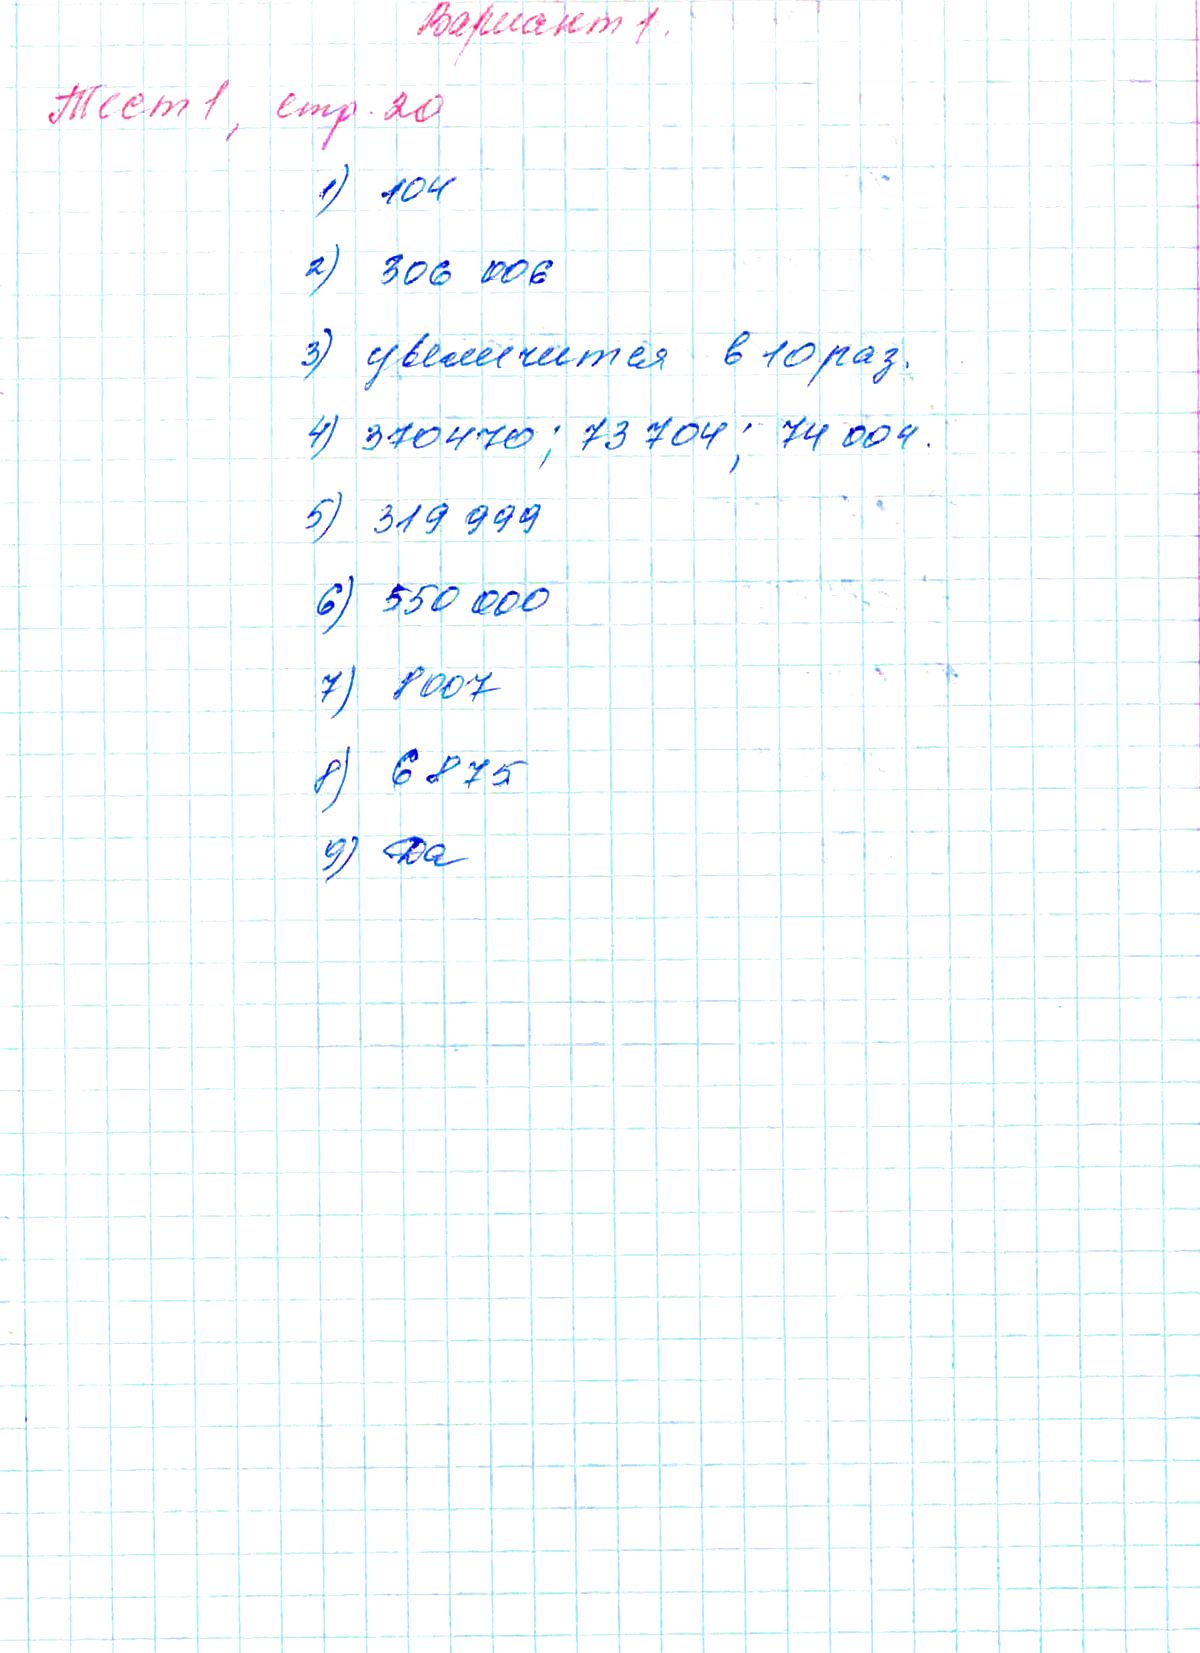 Вариант 1.
Тест 1, стр. 20
1) 104
2) 306 006
3) увеличится в 10 раз.
4) 370470; 73 704; 74 004.
5) 319 999
6) 550 000
7) 8007
8) 6875
9) Да